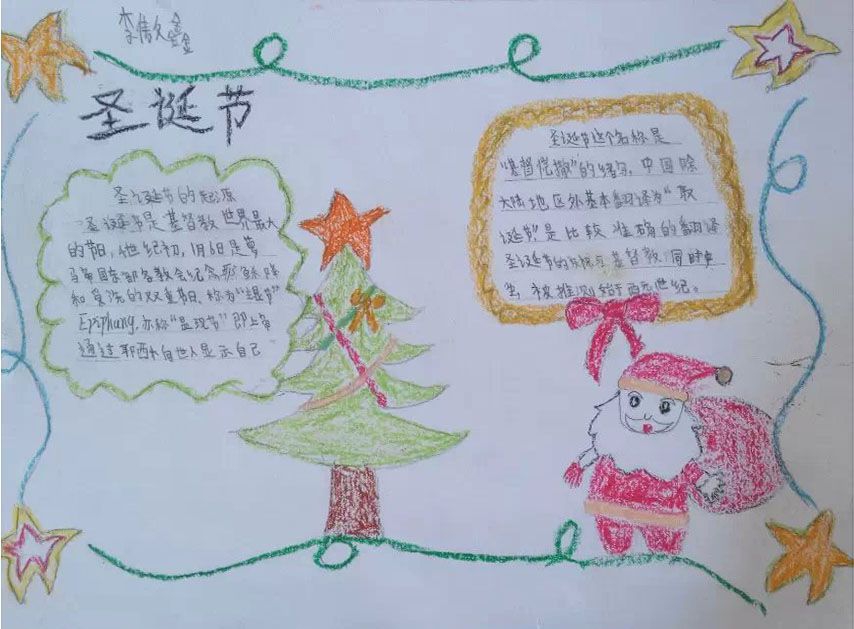 圣诞节
圣诞节的起源
圣诞节是基督教世界最大
的节日,世纪初,1月6日是罗
马帝国东部各教会纪念耶稣降
和复活的双重节日,称为"主显节"
Epiphany,亦称"显现节"即上帝
通过耶稣向世人显示自己
圣诞节这个名称是
"基督弥撒"的缩写,中国除
大陆地区外基本翻译为"耶
诞节"是比较准确的翻译
圣诞节的
基督教同时
被推测始于西元世纪。